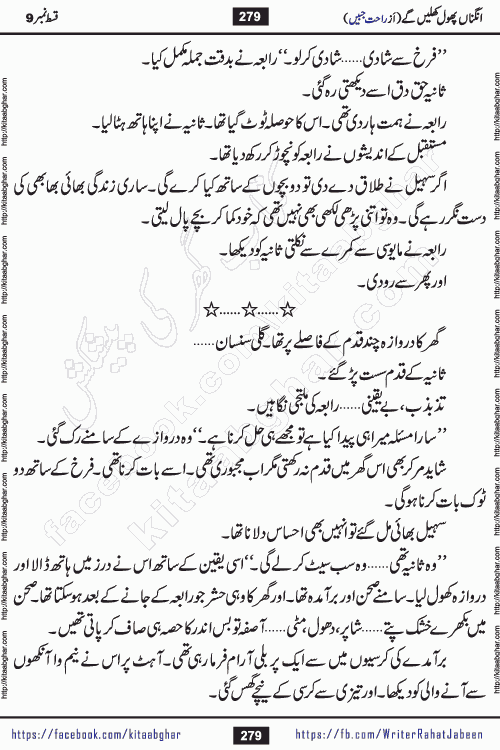 انگناں پھول کھلیں گے (از راحت جبیں)
279
قسط نمبر 9
’’فرخ سے شادی......شادی کرلو۔‘‘ رابعہ نے بدقت جملہ مکمل کیا۔
ثانیہ حق دق اسے دیکھتی رہ گئی۔
رابعہ نے ہمت ہار دی تھی۔ اس کا حوصلہ ٹوٹ گیا تھا۔ ثانیہ نے اپنا ہاتھ ہٹا لیا۔
مستقبل کے اندیشوں نے رابعہ کو نچوڑ کر رکھ دیا تھا۔
اگر سہیل نے طلاق دے دی تو دو بچوں کے ساتھ کیا کرے گی۔ ساری زندگی بھائی بھابھی کی
دست نگر رہے گی۔ وہ تو اتنی پڑھی لکھی بھی نہیں تھی کہ خود کما کر بچے پال لیتی۔
رابعہ نے مایوسی سے کمرے سے نکلتی ثانیہ کو دیکھا۔
اور پھر سے رو دی۔
☆......☆......☆
گھر کا دروازہ چند قدم کے فاصلے پر تھا۔ گلی سنسان......
ثانیہ کے قدم سست پڑ گئے۔
تذبذب، بے یقینی......رابعہ کی ملتجی نگاہیں۔
’’سارا مسئلہ میرا ہی پیدا کیا ہے تو مجھے ہی حل کرنا ہے۔‘‘ وہ دروازے کے سامنے رک گئی۔
شاید مر کر بھی اس گھر میں قدم نہ رکھتی مگر اب مجبوری تھی۔ اسے بات کرنا تھی۔ فرخ کے ساتھ دو
ٹوک بات کرنا ہو گی۔
سہیل بھائی مل گئے تو انہیں بھی احساس دلانا تھا۔
’’وہ ثانیہ تھی......وہ سب سیٹ کرلے گی۔‘‘ اسی یقین کے ساتھ اس نے درز میں ہاتھ ڈالا اور
دروازہ کھول لیا۔ سامنے صحن اور برآمدہ تھا۔ اور گھر کا وہی حشر جو رابعہ کے جانے کے بعد ہو سکتا تھا۔ صحن
میں بکھرے خشک پتے......شاپر، دھول، مٹی......آصفہ تو بس اندر کا حصہ ہی صاف کر پاتی تھیں۔
برآمدے کی کرسیوں میں سے ایک پر بلی آرام فرما رہی تھی۔ آہٹ پر اس نے نیم وا آنکھوں
سے آنے والی کو دیکھا۔ اور تیزی سے کرسی کے نیچے گھس گئی۔
http://kitaabghar.com http://kitaabghar.com http://kitaabghar.com http://kitaabghar.com http://kitaabghar.com http://kitaabghar.com http://kitaabghar.com http://kitaabghar.com
کتاب گھر کی پیشکش
kitaabghar.com
facebook.com/kitaabghar
https://facebook.com/kitaabghar
279
https://fb.com/WriterRahatJabeen